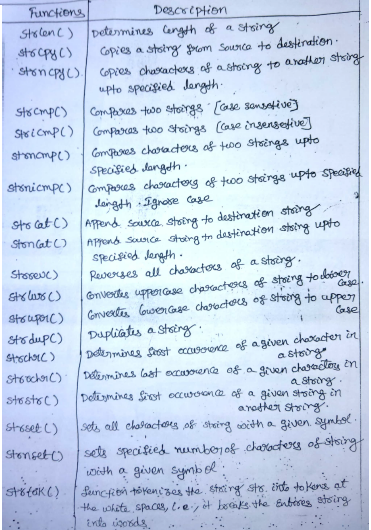 Functions Description
Strlen() Determines length of a string
strcpy() Copies a string from source to destination.
strncpy() Copies characters of a string to another string
upto specified length.
strcmp() Compares two strings [Case sensetive]
Stricmp() Compares two strings [case insensetive]
strncmp() Compares characters of two strings upto
specified length.
strnicmp() Compares characters of two strings upto specified
length. Ignore case
strcat() Append source string to destination string
Strncat() Append source string to destination string upto
specified length.
strrev() Reverses all characters of a string.
strlwr() Convertes uppercase characters of string to lower
case.
strupr() Convertes lowercase characters of string to upper
case
strdup() Duplicates a string.
strchr() Determines first occurrence of a given character in
a string
strrchr() Determines last occurrence of a given character in
a string.
strstr() Determines first occurrence of a given string in
another string.
strset() sets all characters of string with a given symbol.
strnset() sets specified number of characters of string
with a given symbol
strtok() function tokenizes the string str. into tokens at
the white spaces, i.e., it breaks the entire string
into words